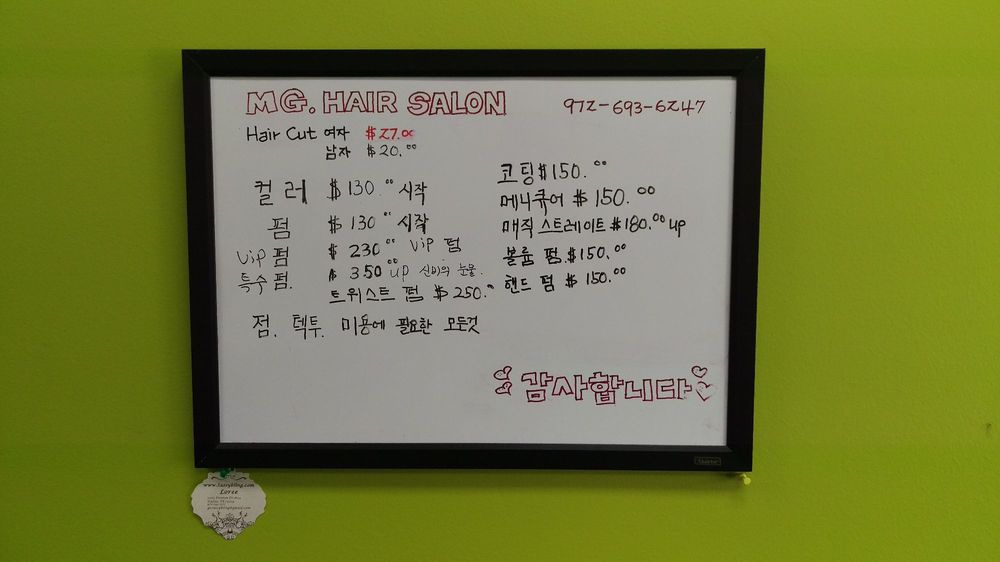 MG. HAIR SALON 972-693-6247
Hair Cut 여자 $27.00
남자 $20.00
컬러 $130.00 시작
펌 $130.00 시작
Vip펌 $230.00 Vip 펌
특수펌. $350.00 up 신비의 눈물.
트위스트 펌 $250.00
점. 텍투. 미용에 필요한 모든것
코팅 $150.00
메니큐어 $150.00
매직 스트레이트 $180.00 up
볼륨 펌. $150.00
핸드 펌 $150.00
감사합니다
www.luxybling.com
Loree